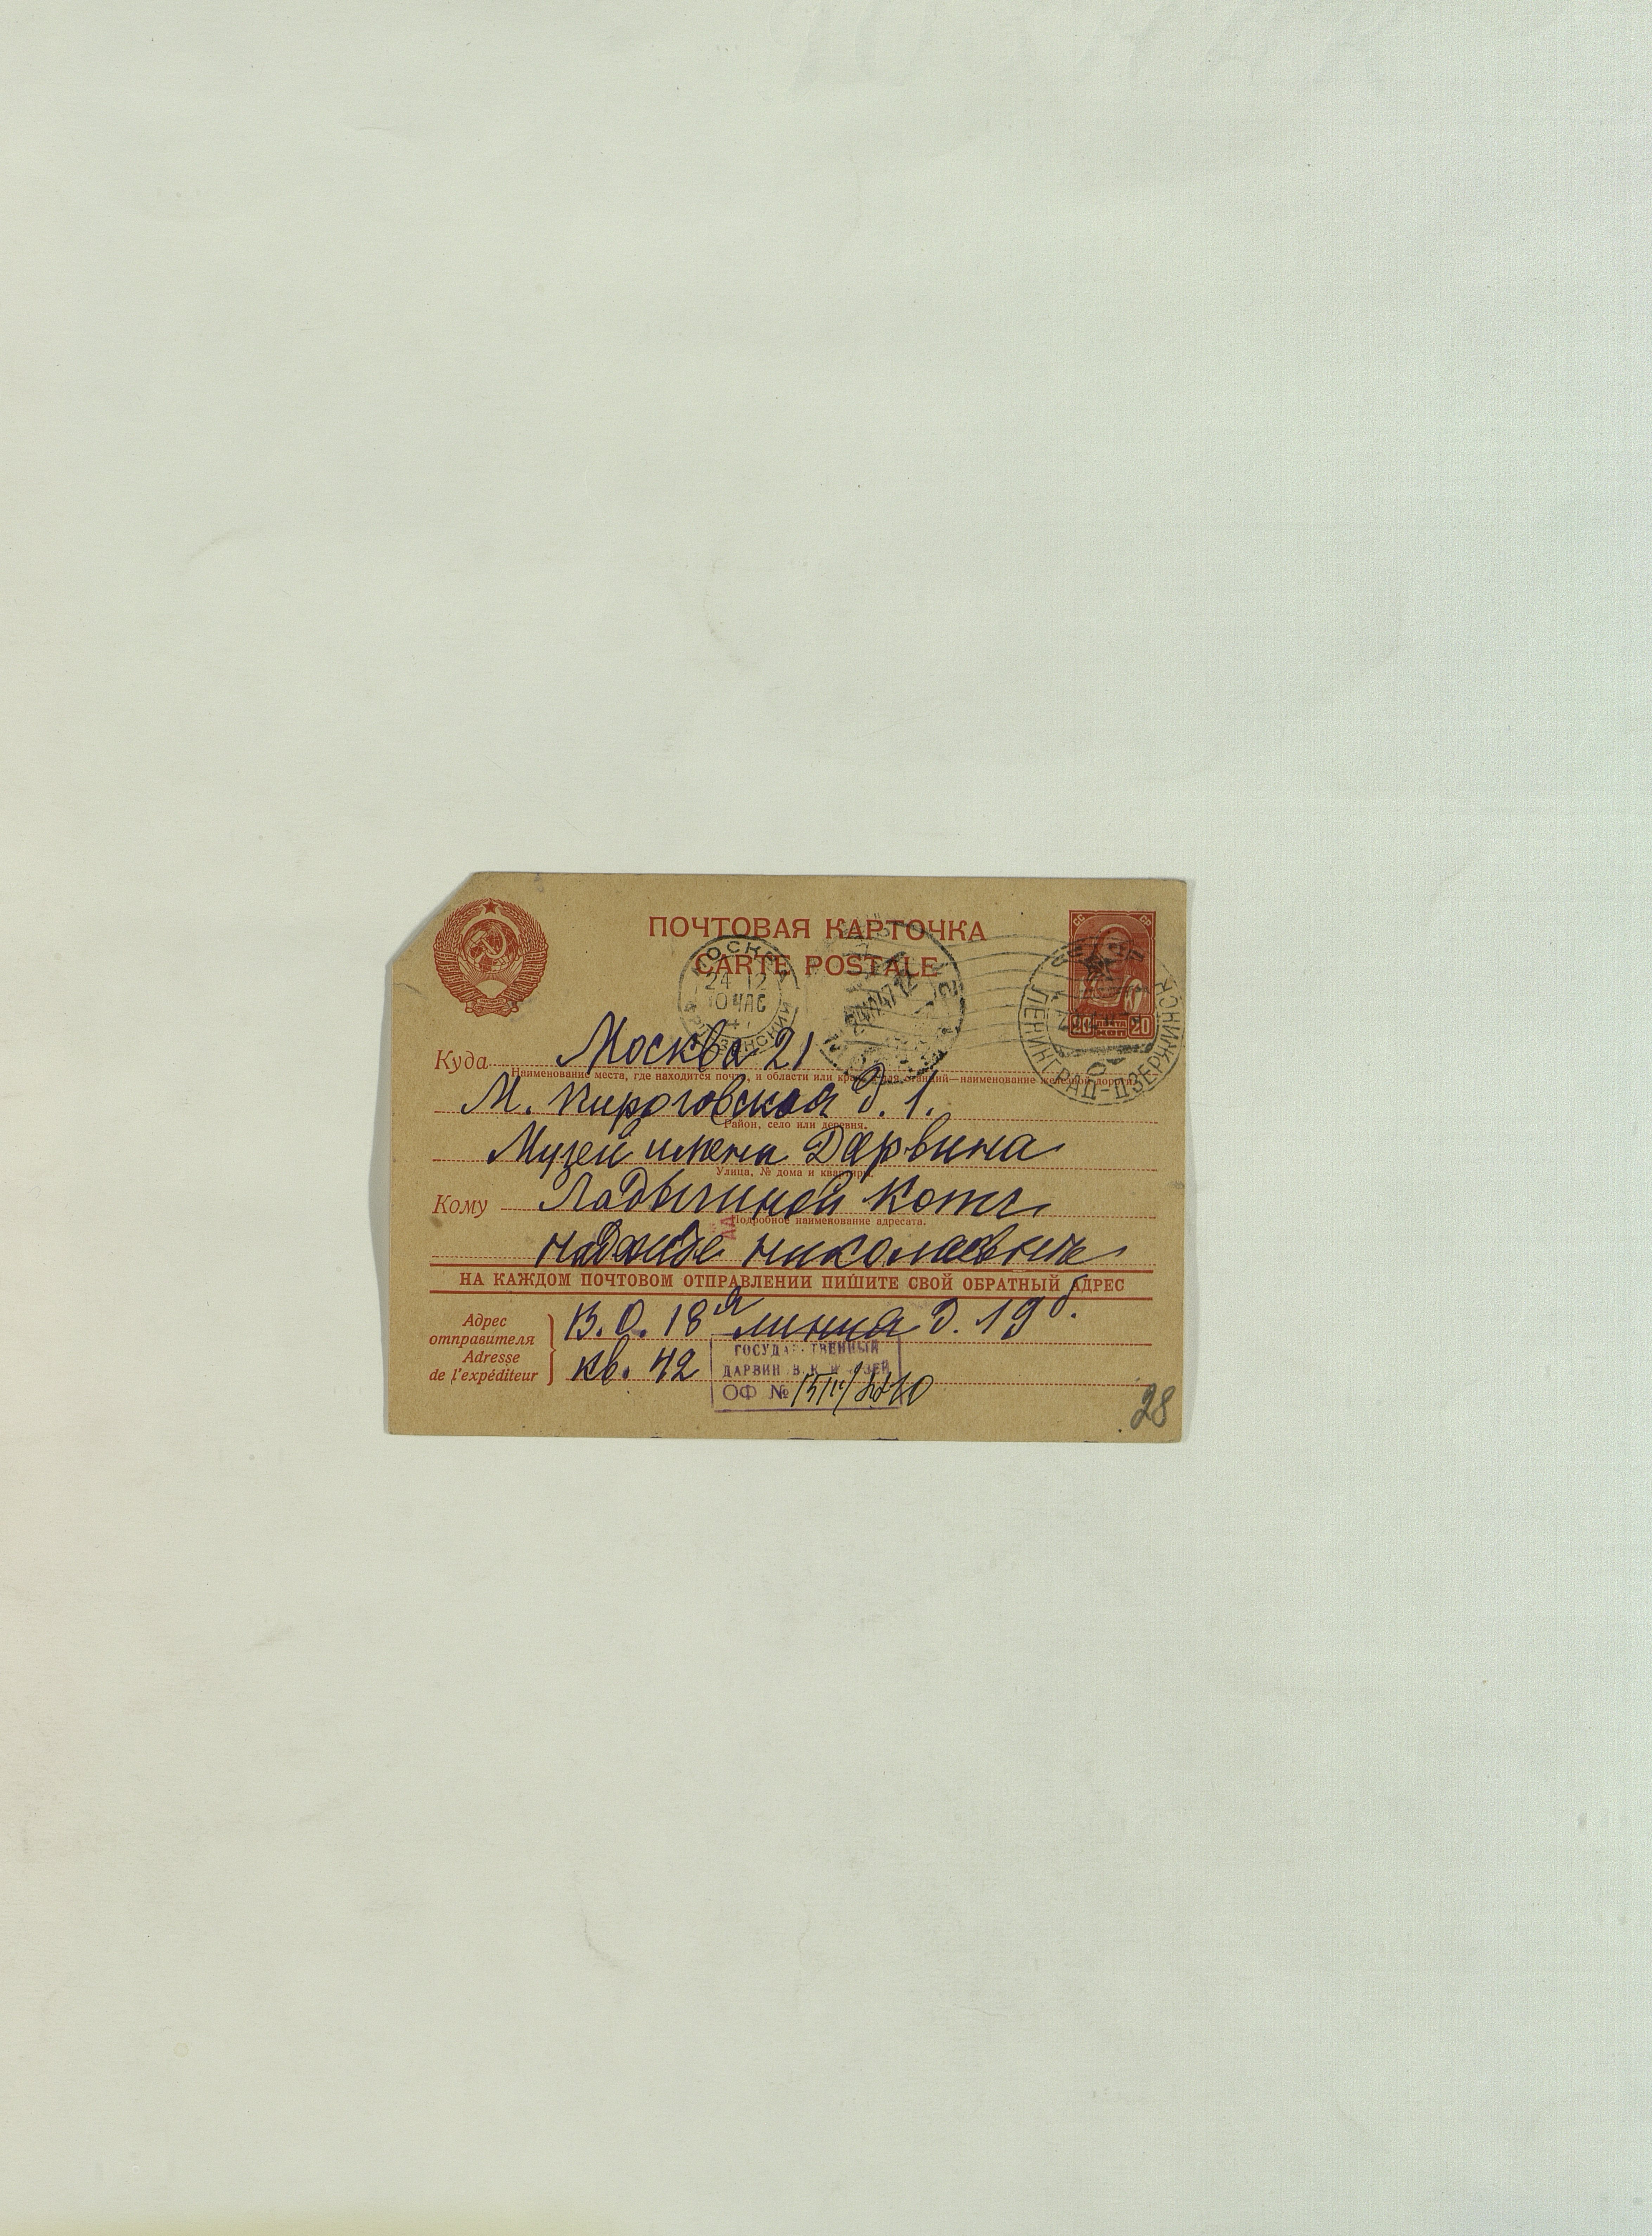 ПОЧТОВАЯ КАРТОЧКА
CARTE POSTALE
МОСКВА
24 12
10 ЧАС
СССР
ЛЕНИНГРАД-ДЗЕРЖИНСК
20 20
КОП
Куда Москва 21
Наименование места, где находится почта, и области или края, а для станций—наименование железной дороги.
М. Пироговская д. 1.
Район, село или деревня.
Музей имени Дарвина
Улица, № дома и квартиры.
Кому Ладыгиной Котс
Подробное наименование адресата.
Надежде Николаевне
НА КАЖДОМ ПОЧТОВОМ ОТПРАВЛЕНИИ ПИШИТЕ СВОЙ ОБРАТНЫЙ АДРЕС
Адрес отправителя
Adresse de l'expéditeur
В.О. 18я линия д. 19 б.
кв. 42
ГОСУДАРСТВЕННЫЙ
ДАРВИНОВСКИЙ МУЗЕЙ
ОФ №
28